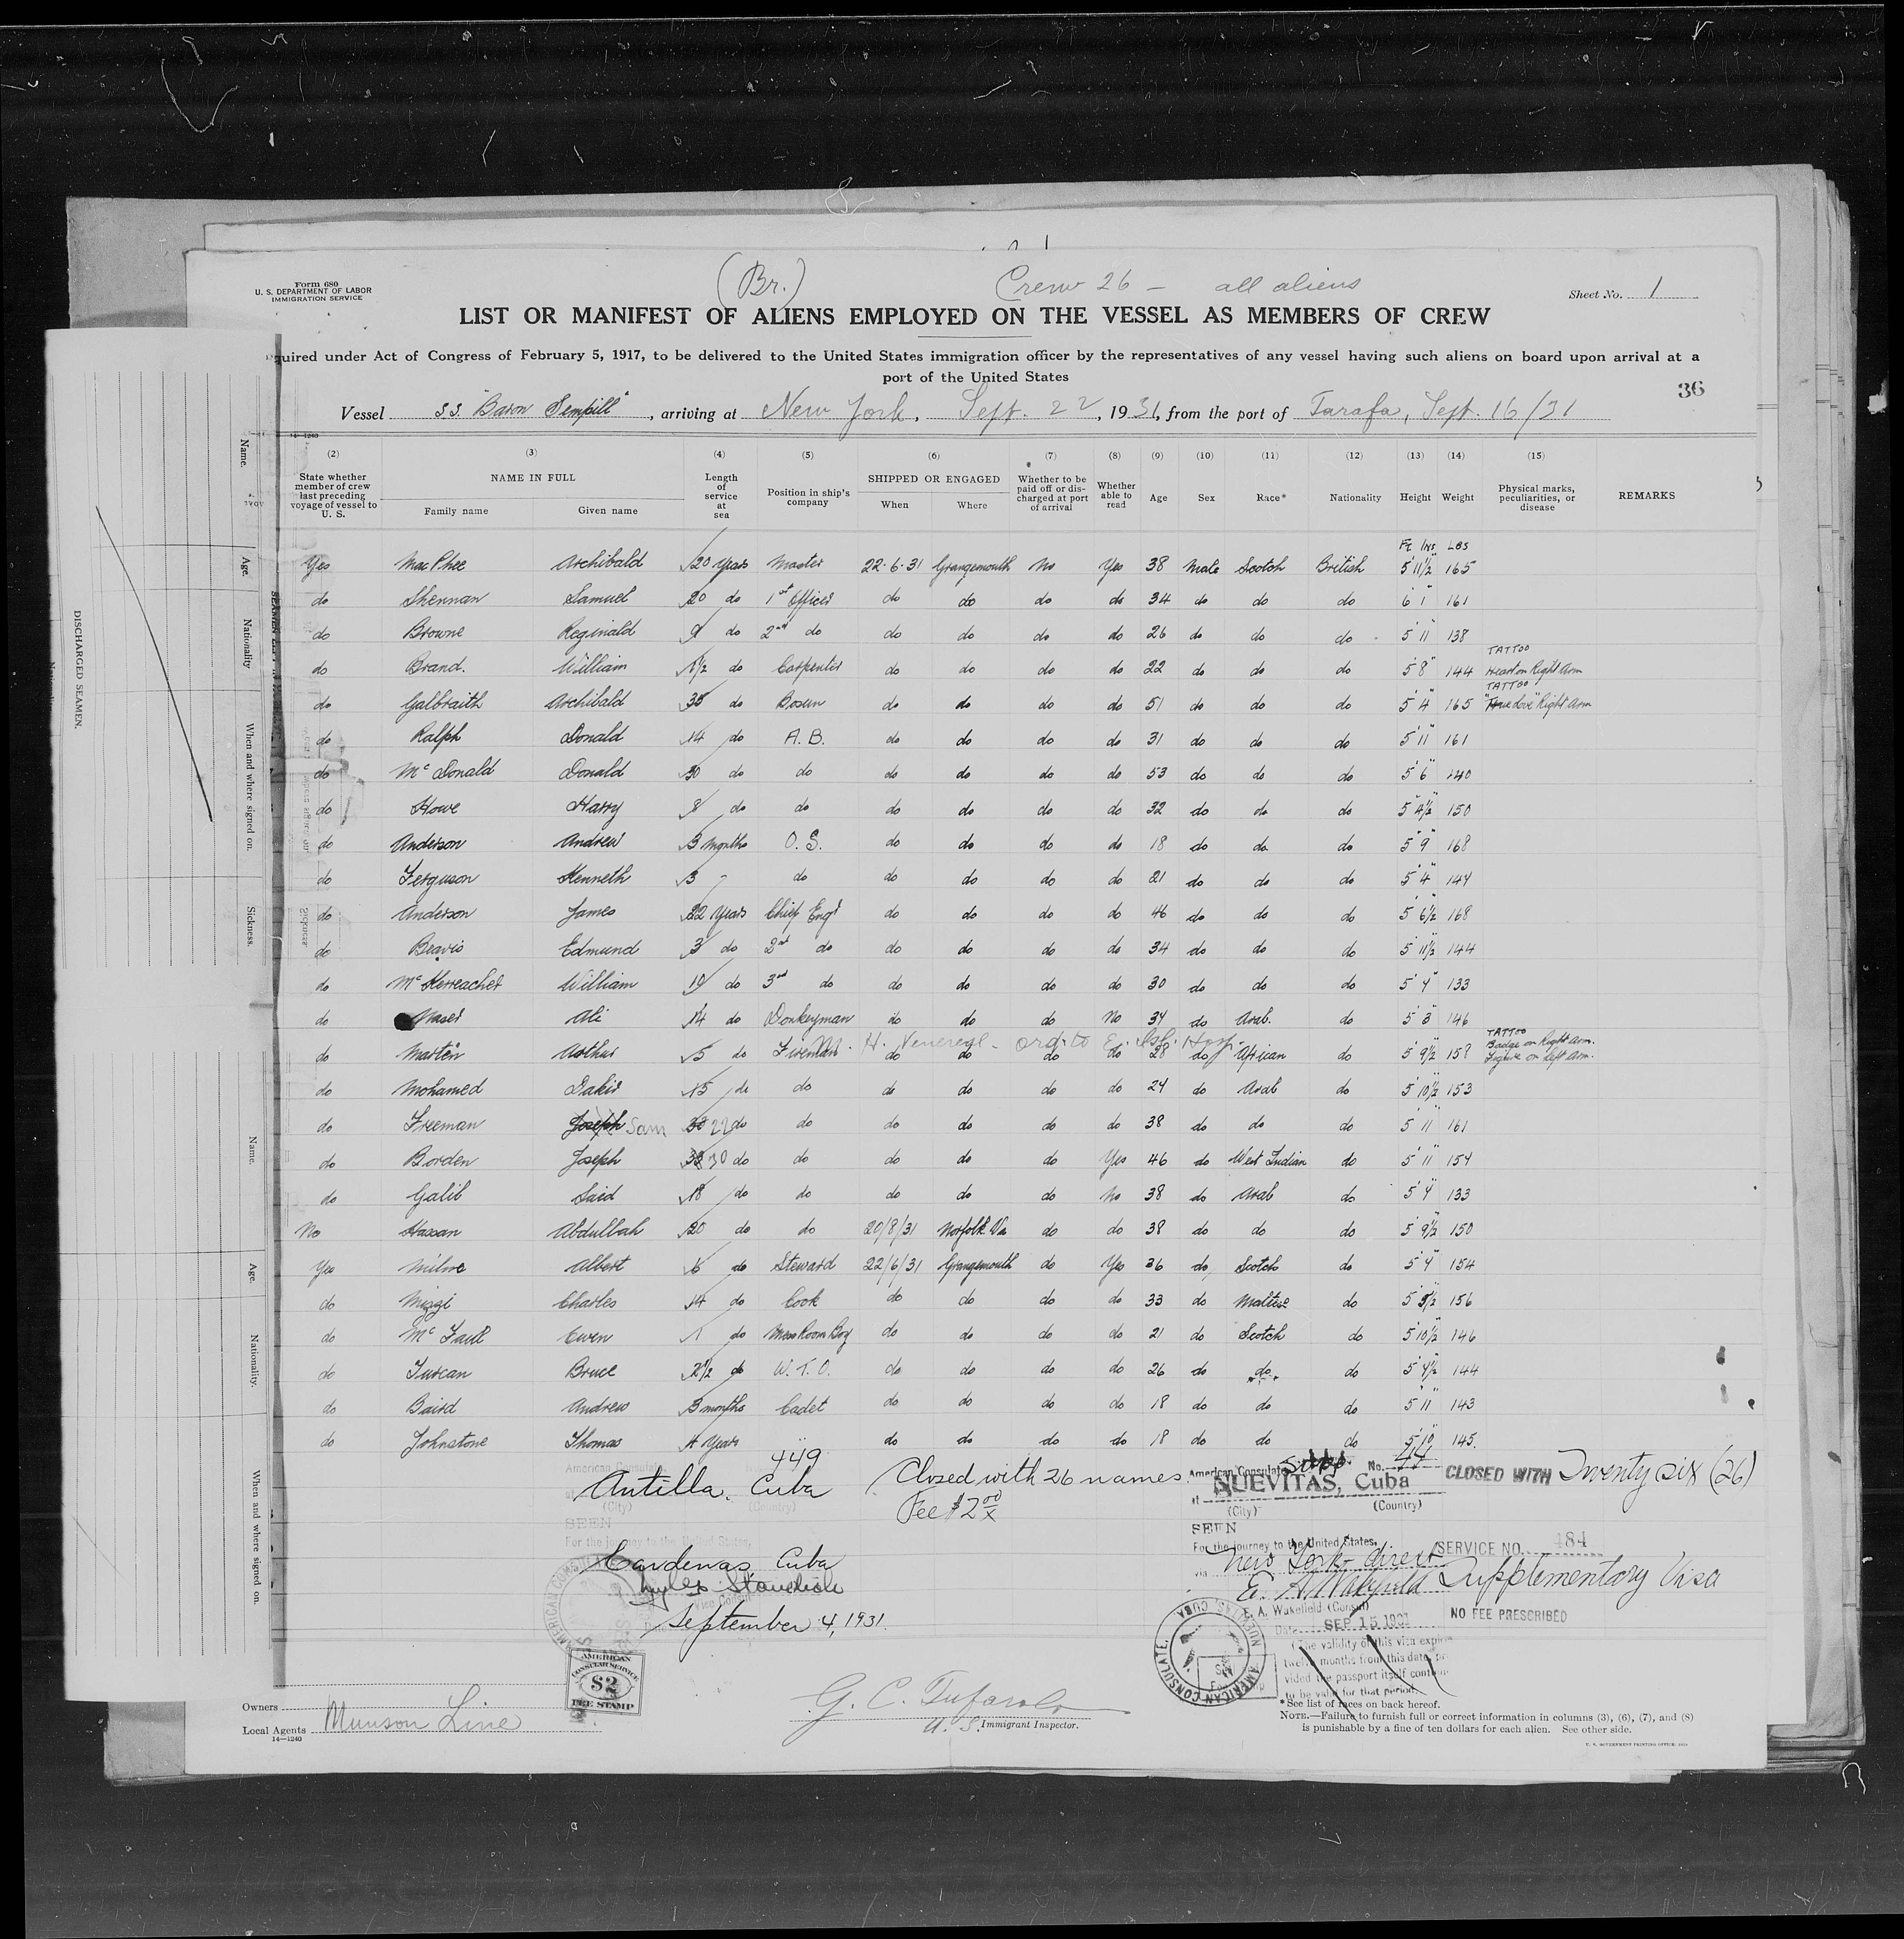 (Br.) Crew 26 - all aliens
Form 680
U. S. DEPARTMENT OF LABOR
IMMIGRATION SERVICE
Sheet No. 1
LIST OR MANIFEST OF ALIENS EMPLOYED ON THE VESSEL AS MEMBERS OF CREW
quired under Act of Congress of February 5, 1917, to be delivered to the United States immigration officer by the representatives of any vessel having such aliens on board upon arrival at a
port of the United States
36
Vessel S.S. "Baron Sempill", arriving at New York, Sept. 22, 1931, from the port of Tarafa, Sept. 16/31
14-1240
(2) (3) (4) (5) (6) (7) (8) (9) (10) (11) (12) (13) (14) (15)
State whether member of crew last preceding voyage of vessel to U. S. NAME IN FULL Family name Given name Length of service at sea Position in ship's company SHIPPED OR ENGAGED When Where Whether to be paid off or discharged at port of arrival Whether able to read Age Sex Race* Nationality Height Weight Physical marks, peculiarities, or disease REMARKS
Ft Ins Lbs
Yes MacPhee Archibald 20 years Master 22.6.31 Grangemouth No Yes 38 Male Scotch British 5' 11½" 165
do Shennan Samuel 20 do 1st Officer do do do do 34 do do do 6' 1" 161
do Browne Reginald 9 do 2nd do do do do do 26 do do do 5' 11" 138
do Brand. William 1½ do Carpenter do do do do 22 do do do 5' 8" 144 TATTOO Heart on Right Arm
do Galbraith Archibald 35 do Bosun do do do do 51 do do do 5' 4" 165 TATTOO "True Love" Right Arm
do Ralph Donald 14 do A. B. do do do do 31 do do do 5' 11" 161
do McDonald Donald 30 do do do do do do 53 do do do 5' 6" 140
do Howe Harry 8 do do do do do do 32 do do do 5' 4½" 150
do Anderson Andrew 3 months O. S. do do do do 18 do do do 5' 9" 168
do Ferguson Kenneth 3 " do do do do do 21 do do do 5' 4" 147
do Anderson James 22 years Chief Engr do do do do 46 do do do 5' 6½" 168
do Beavis Edmund 3 do 2nd do do do do do 34 do do do 5' 11½" 144
do McKerreacher William 14 do 3rd do do do do do 30 do do do 5' 4" 133
do Naser Ali 14 do Donkeyman do do do No 34 do Arab. do 5' 3" 146
H. Venereal - ord. to E. Isl. Hosp.
do Martin Arthur 5 do Fireman do do do do 28 do African do 5' 9½" 158 TATTOO Badge on Right Arm. Figure on left Arm.
do Mohamed Dakir 15 do do do do do do 24 do Arab do 5' 10½" 153
do Freeman Joseph Sam 30 22 do do do do do do 38 do do do 5' 11" 161
do Borden Joseph 38 30 do do do do do Yes 46 do West Indian do 5' 11" 154
do Galib Said 18 do do do do do No 38 do Arab do 5' 4" 133
No Hassan Abdullah 20 do do 20/8/31 Norfolk Va do do 38 do do do 5' 9½" 150
Yes Milne Albert 6 do Steward 22/6/31 Grangemouth do Yes 36 do Scotch do 5' 4" 154
do Mizzi Charles 14 do Cook do do do do 33 do Maltese do 5' 5½" 156
do McFaul Ewen 1 do Mess Room Boy do do do do 21 do Scotch do 5' 10½" 146
do Turcan Bruce 2½ do W. T. O. do do do do 26 do do do 5' 4½" 144
do Baird Andrew 3 months Cadet do do do do 18 do do do 5' 11" 143
do Johnstone Thomas 4 years " do do do do 18 do do do 5' 10" 145.
449
American Consulate
Antilla, Cuba
(City) (Country)
Closed with 26 names.
Fee $2.00
SEEN
For the journey to the United States,
Cardenas, Cuba
Myles Standish
Vice Consul
September 4, 1931.
AMERICAN CONSULAR SERVICE
$2
FEE STAMP
American Consulate Supp. No. 44
at NUEVITAS, Cuba
(City) (Country)
CLOSED WITH Twenty six (26)
SEEN
For the journey to the United States,
via New York direct
SERVICE NO. 484
E. A. Wakefield
Supplementary Visa
E. A. Wakefield (Consul)
Date SEP 15 1931
NO FEE PRESCRIBED
(The validity of this visa expires
twelve months from this date, pro
vided the passport itself continues
to be valid for that period.
AMERICAN CONSULATE, NUEVITAS, CUBA.
Owners
Local Agents Munson Line
14-1240
G. C. Tufarolo
U. S. Immigrant Inspector.
*See list of races on back hereof.
NOTE.—Failure to furnish full or correct information in columns (3), (6), (7), and (8)
is punishable by a fine of ten dollars for each alien. See other side.
U. S. GOVERNMENT PRINTING OFFICE
Name.
Age.
Nationality
When and where signed on.
Sickness.
DISCHARGED SEAMEN.
Name.
Age.
Nationality.
When and where signed on.